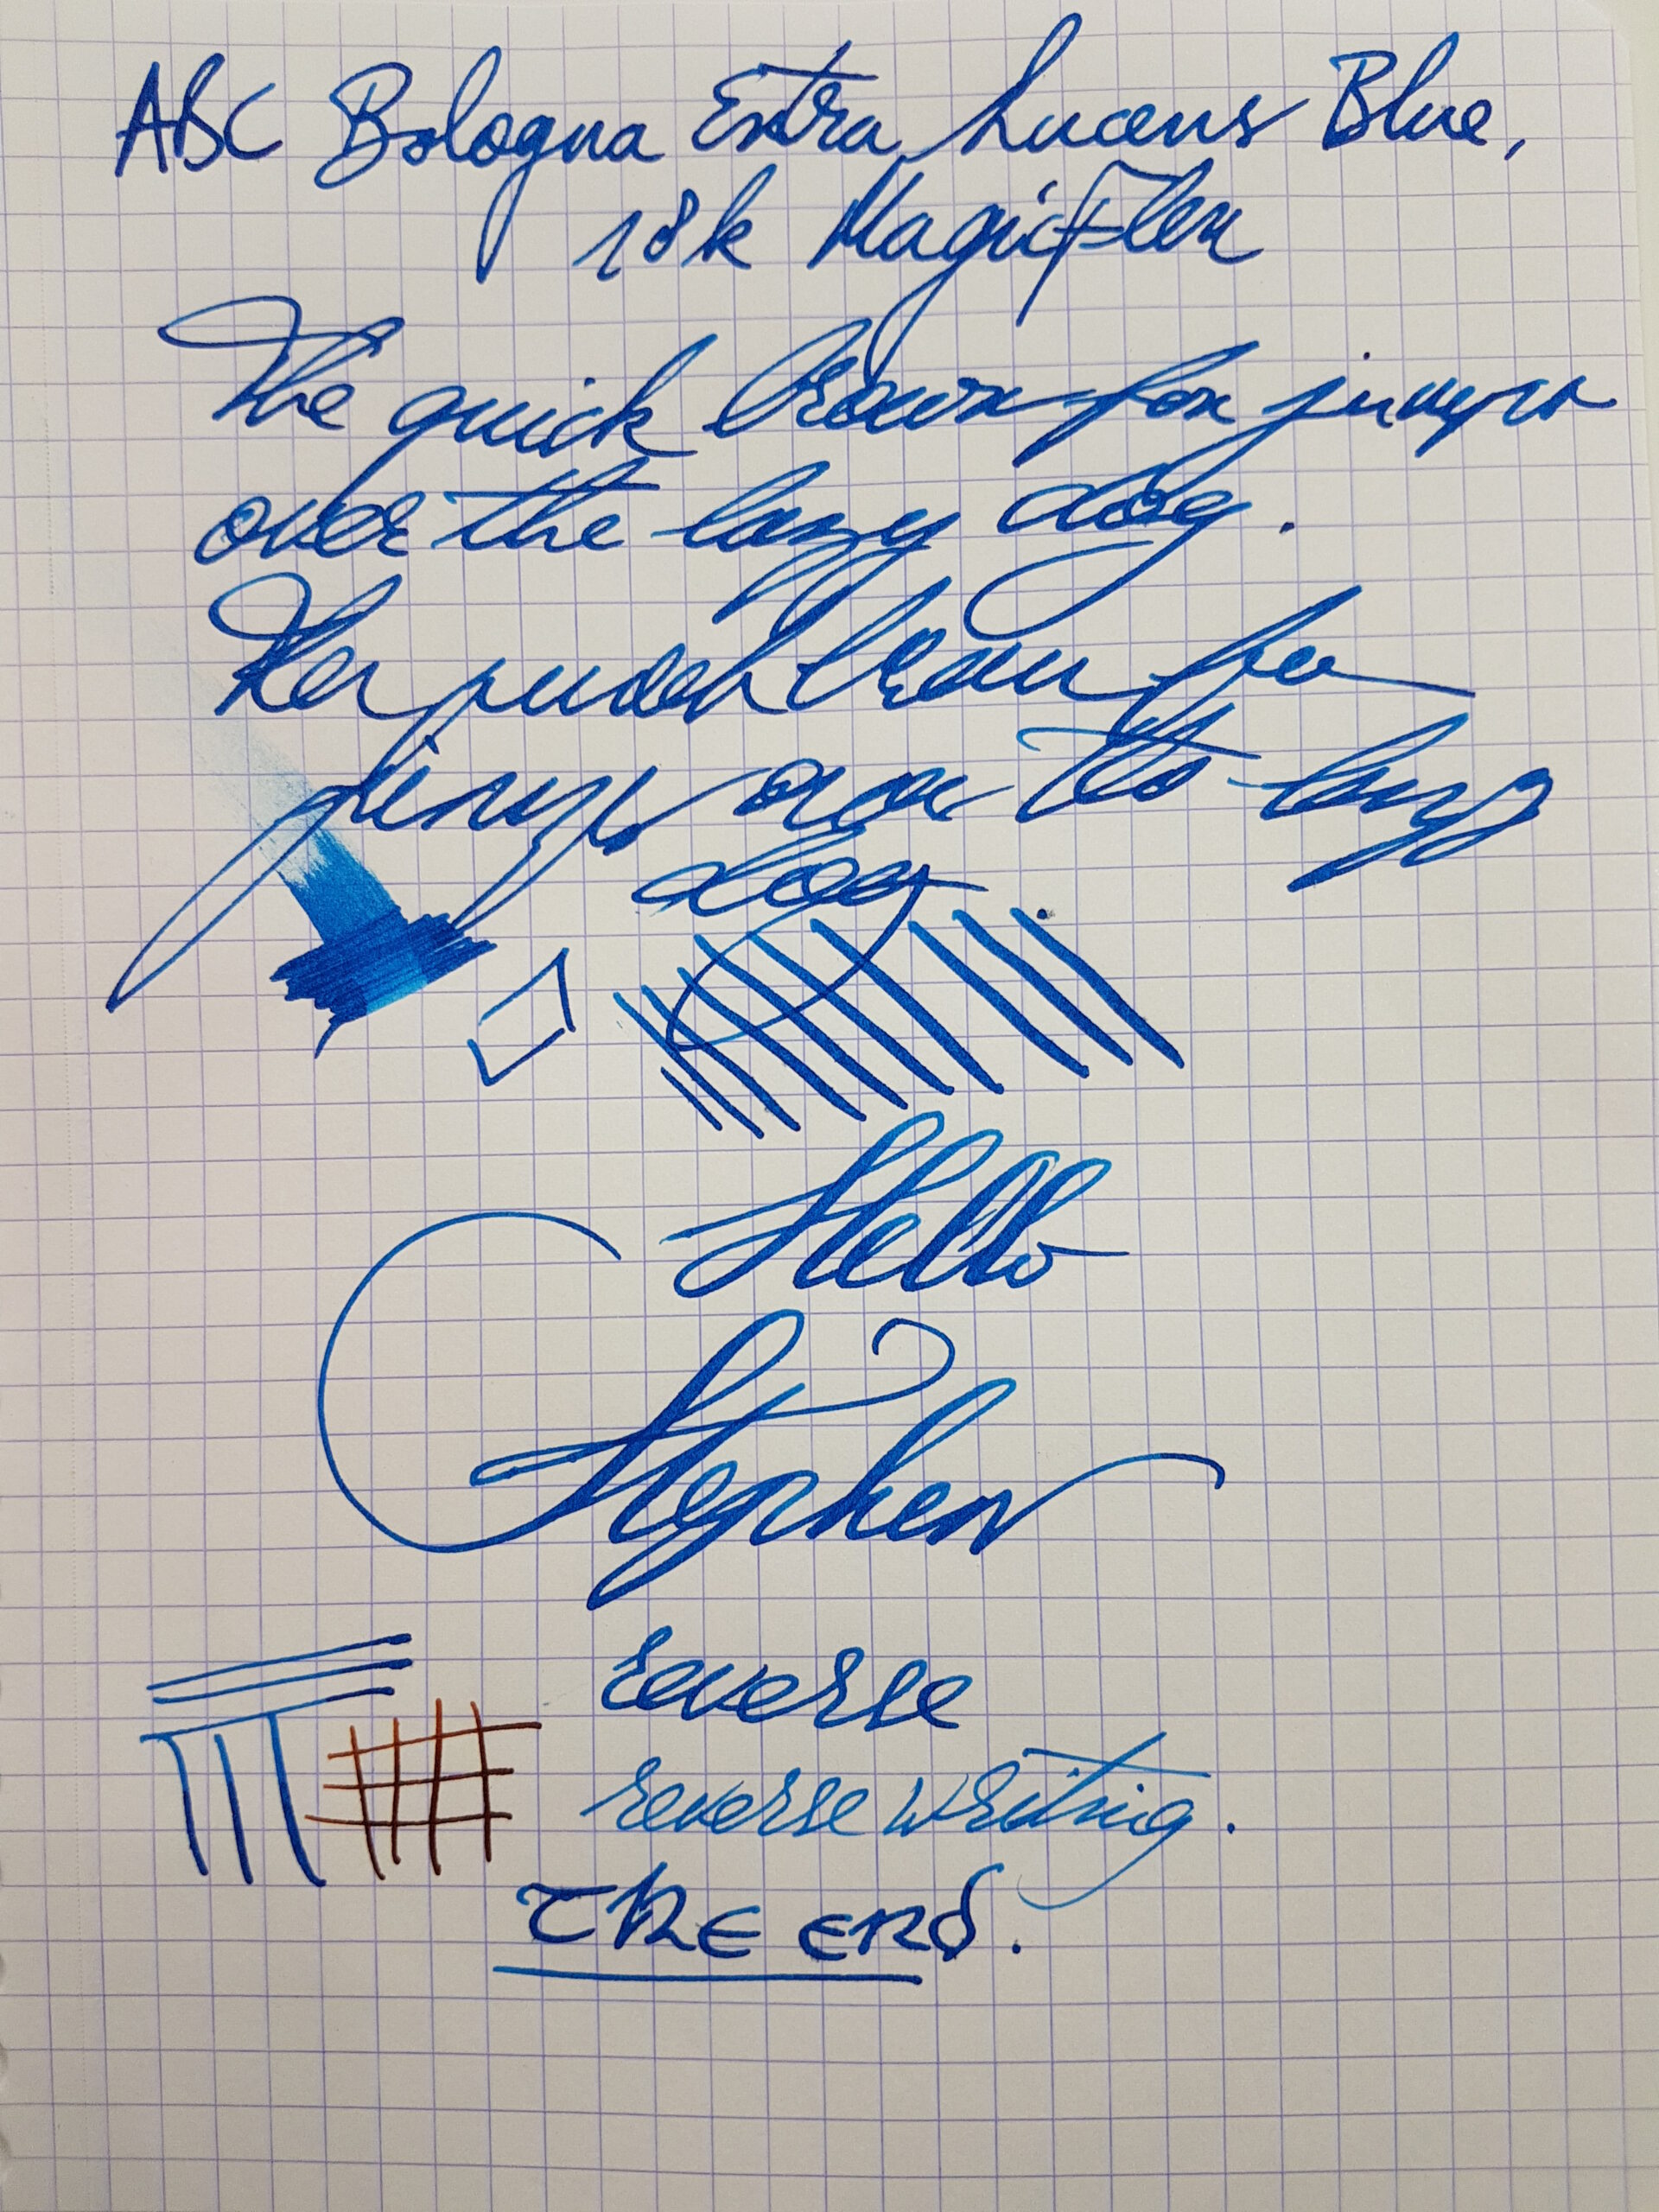 ABC Bologna Extra Lucens Blue,
18k MagicFlex
The quick brown fox jumps
over the lazy dog.
The brown fox
jumps over the lazy
dog
Hello
Stephen
reverse
reverse writing.
The end.